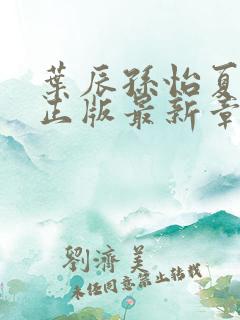 葉辰孫怡夏
正版最新章
劉濟美
未经同意禁止转载